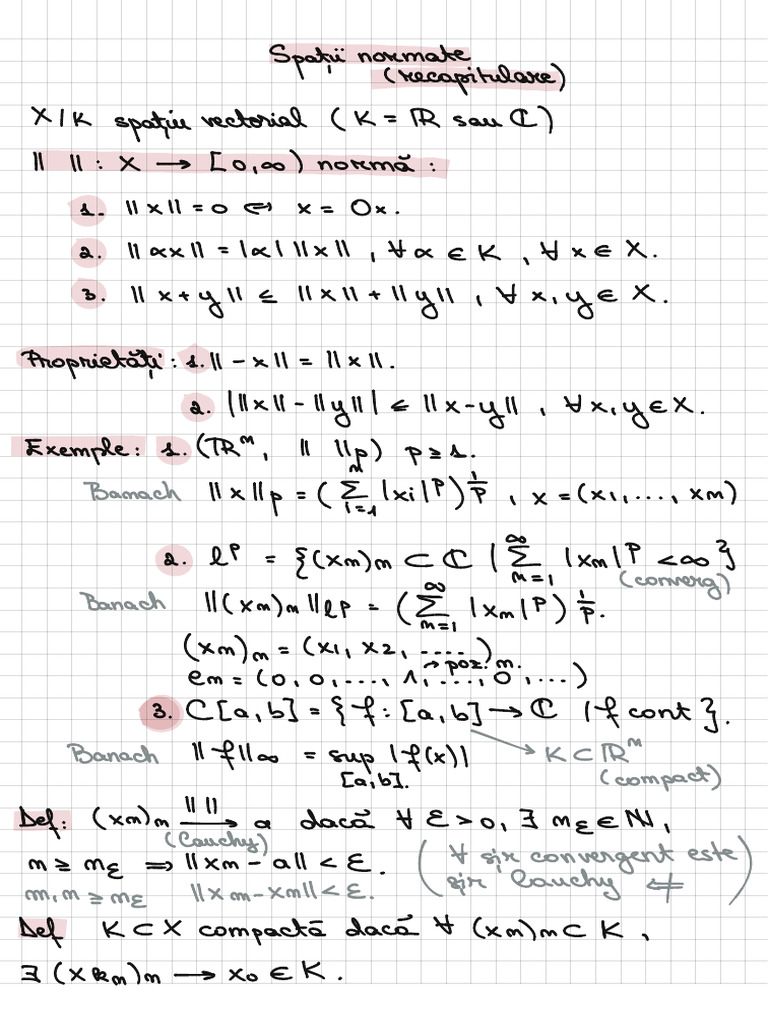 Spații normate
(recapitulare)
X/K spațiu vectorial (K = ℝ sau ℂ)
‖ ‖ : X → [0,∞) normă :
1. ‖x‖ = 0 ⇔ x = 0x.
2. ‖αx‖ = |α| ‖x‖ , ∀ α ∈ K , ∀ x ∈ X.
3. ‖x+y‖ ≤ ‖x‖ + ‖y‖ , ∀ x, y ∈ X.
Proprietăți : 1. ‖-x‖ = ‖x‖.
2. |‖x‖ - ‖y‖| ≤ ‖x-y‖ , ∀ x, y ∈ X.
Exemple : 1. (ℝⁿ, ‖ ‖p) p ≥ 1.
Banach ‖x‖p = (∑_{i=1}^{n} |xi|^p)^{1/p} , x = (x1, ..., xn)
2. ℓ^p = {(xn)n ⊂ ℂ | ∑_{n=1}^{∞} |xn|^p < ∞}
(converg)
Banach ‖(xn)n‖ℓp = (∑_{n=1}^{∞} |xn|^p)^{1/p}.
(xn)n = (x1, x2, .....)
→ poz. n.
en = (0, 0, ..., 1, ..., 0, ...)
3. C[a,b] = {f : [a,b] → ℂ | f cont}.
Banach ‖f‖∞ = sup |f(x)| → K ⊂ ℝⁿ
[a,b]. (compact)
Def: (xn)n —‖ ‖→ a dacă ∀ ε > 0, ∃ nε ∈ ℕ,
(Cauchy)
n ≥ nε ⇒ ‖xn - a‖ < ε. (∀ șir convergent este
m, n ≥ nε ‖xn - xm‖ < ε. șir Cauchy ⇍)
Def K ⊂ X compactă dacă ∀ (xn)n ⊂ K ,
∃ (xkn)n → x0 ∈ K.